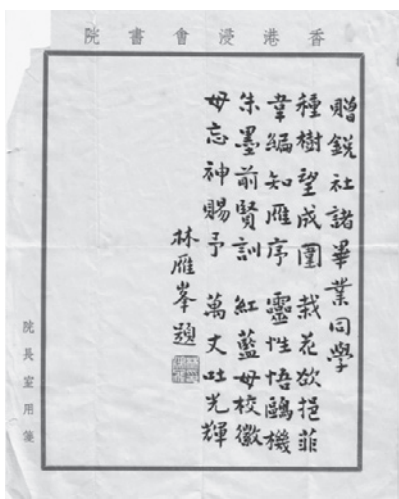 香港浸會書院
贈銳社諸畢業同學
種樹望成圍 栽花欲挹菲
韋編知雁序 靈性悟鷗機
朱墨前賢訓 紅藍母校徽
毋忘神賜予 萬丈吐光輝
林雁峯題
院長室用箋